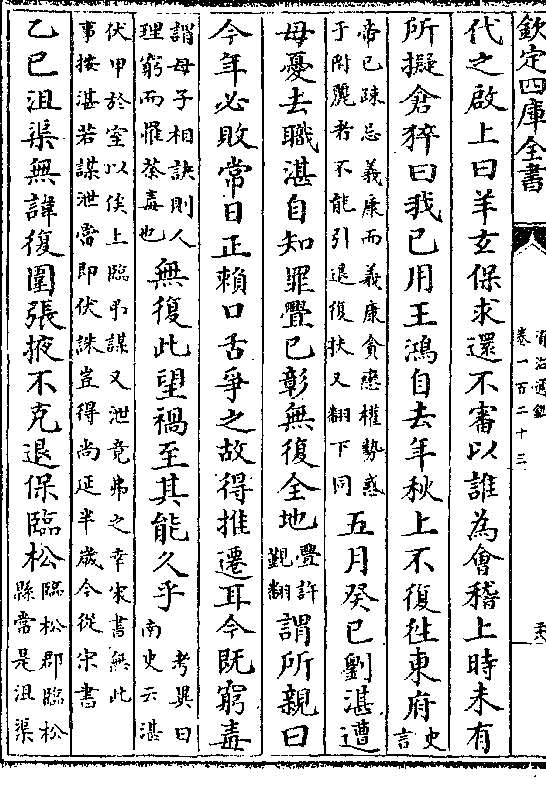 欽定四庫全書
資治通鑑
卷一百二十三
代之啟上曰羊玄保求還不審以誰為會稽上時未有
所擬倉猝曰我已用王鴻自去年秋上不復往東府史言
帝已疎忌義康而義康貪戀權勢惑
于附麗者不能引退復扶又翻下同
五月癸巳劉湛遭
母憂去職湛自知罪釁已彰無復全地釁許覲翻謂所親曰
今年必敗常日正賴口舌爭之故得推遷耳今既窮毒
謂母子相訣則人
理窮而罹荼毒也
無復此望禍至其能久乎考異曰
南史云湛
伏甲於室以俟上臨弔謀又泄竟弗之幸宋書無此
事按湛若謀泄當即伏誅豈得尚延半歲今從宋書
乙巳沮渠無諱復圍張掖不克退保臨松臨松郡臨松
縣常是沮渠